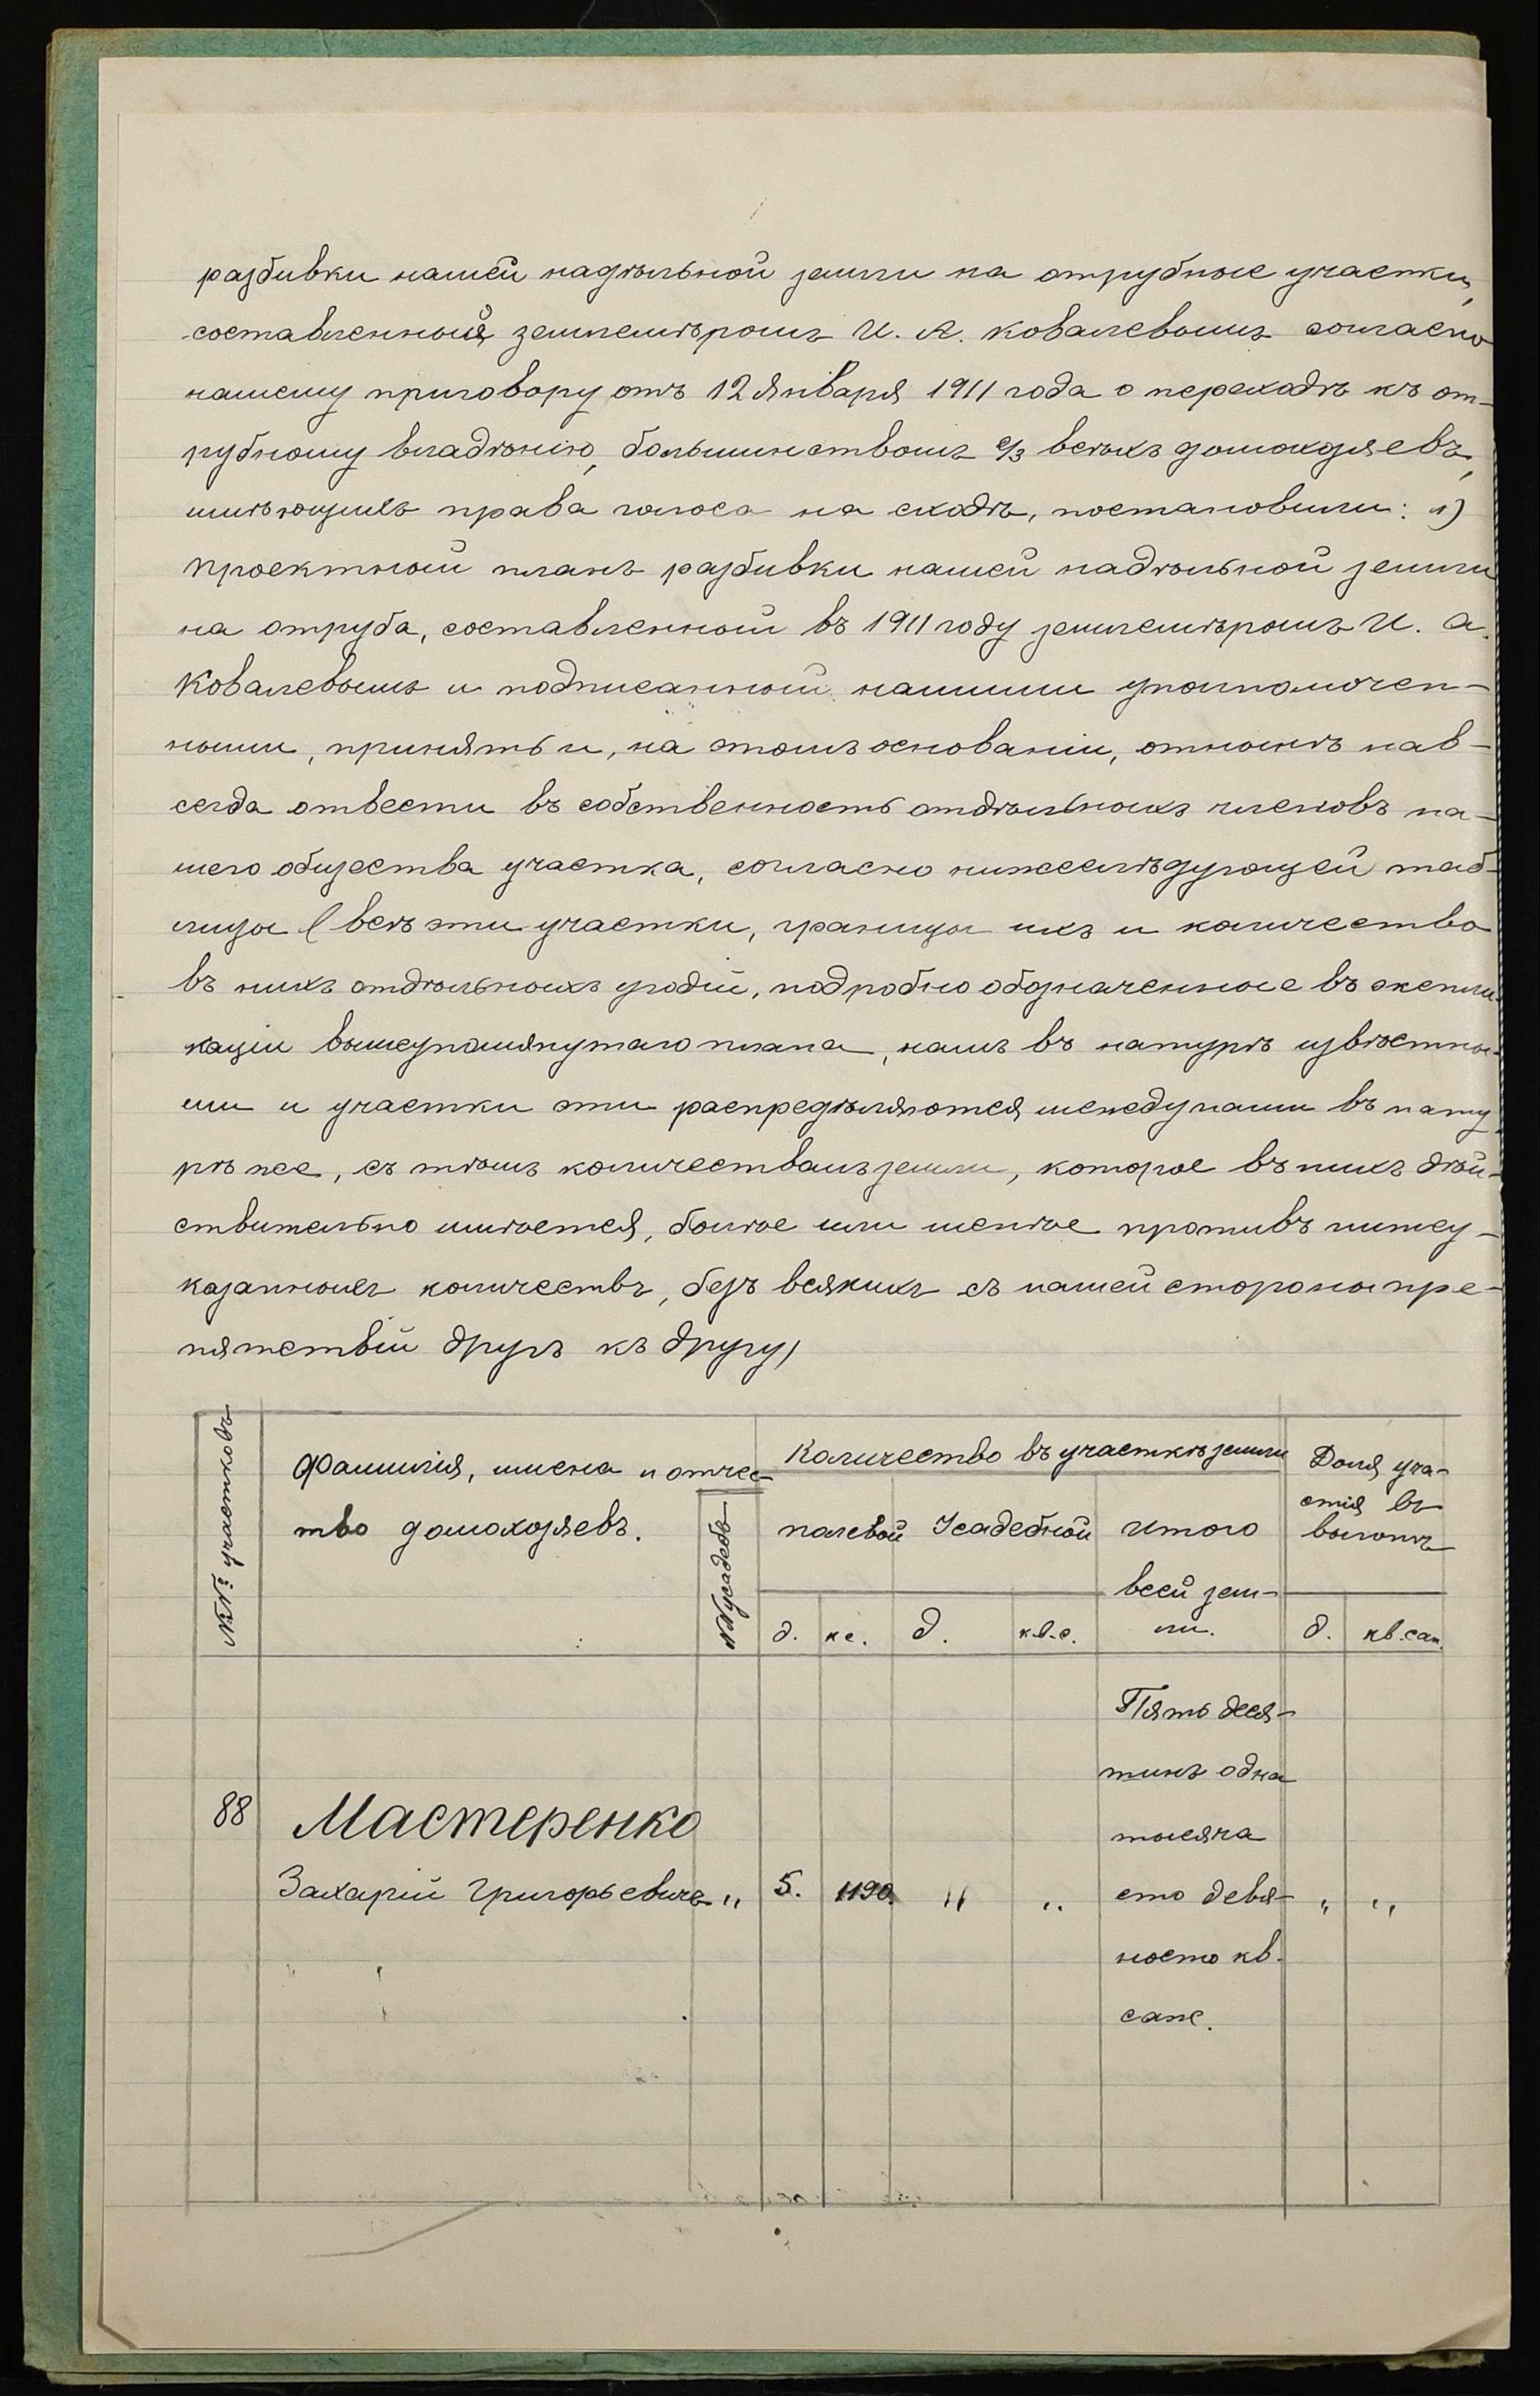 разбивки нашей надѣльной земли на отрубные участки,
составленный землемѣромъ И. А. Ковалевымъ согласно
нашему приговору отъ 12 Января 1911 года о переходѣ къ от-
рубному владѣнію, большинствомъ 2/3 всѣхъ домохозяевъ,
имѣющихъ права голоса на сходѣ, постановили: 1)
проектный планъ разбивки нашей надѣльной земли
на отруба, составленный въ 1911 году землемѣромъ И. А.
Ковалевымъ и подписанный нашими уполномочен-
ными, принять и, на этомъ основаніи, отнынѣ нав-
сегда отвести въ собственность отдѣльныхъ членовъ на-
шего общества участка, согласно нижеслѣдующей таб-
лицы (всѣ эти участки, границы ихъ и количество
въ нихъ отдѣльныхъ угодій, подробно обозначенные въ экспли-
каціи вышеупомянутаго плана, намъ въ натурѣ извѣстны-
ми и участки эти распредѣляются между нами въ нату-
рѣ же, съ тѣмъ количествамъ земли, которое въ нихъ дѣй-
ствительно имѣется, болѣе или менѣе противъ нижеу-
казанныхъ количествъ, безъ всякихъ съ нашей стороны пре-
пятствій другъ къ другу)
№№ участковъ
Фамилія, имена и отчес-
тво домохозяевъ.
№№ усадебъ
Количество въ участкѣ земли
полевой Усадебной Итого
всей зем-
ли.
Доля уча-
стія въ
выгонѣ
д. кс. д. кв.с. д. кв.саж.
Пять деся-
тинъ одна
88 Мастеренко тысяча
Захарій Григорьевичъ „ 5. 1190. „ „ сто девя- „ „
носто кв.
саж.